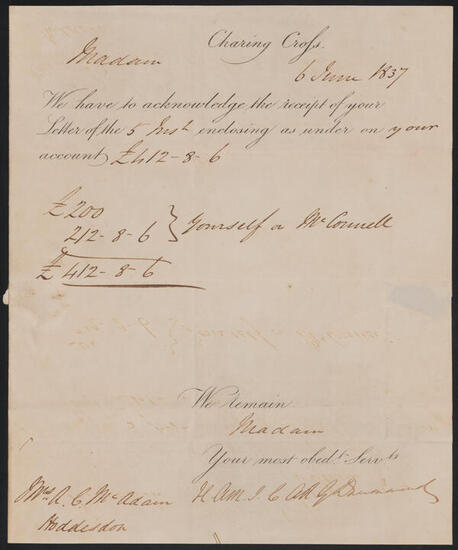 Charing Cross.
Madam
6 June 1837
We have to acknowledge the receipt of your
Letter of the 5 Inst enclosing as under on your
account £412-8-6
£200
212-8-6 } Yourself o McConnell
£412-8-6
We Remain
Madam
Your most obedt. Servts
Mrs A. C. McAdam
Hoddesdon
Drummond